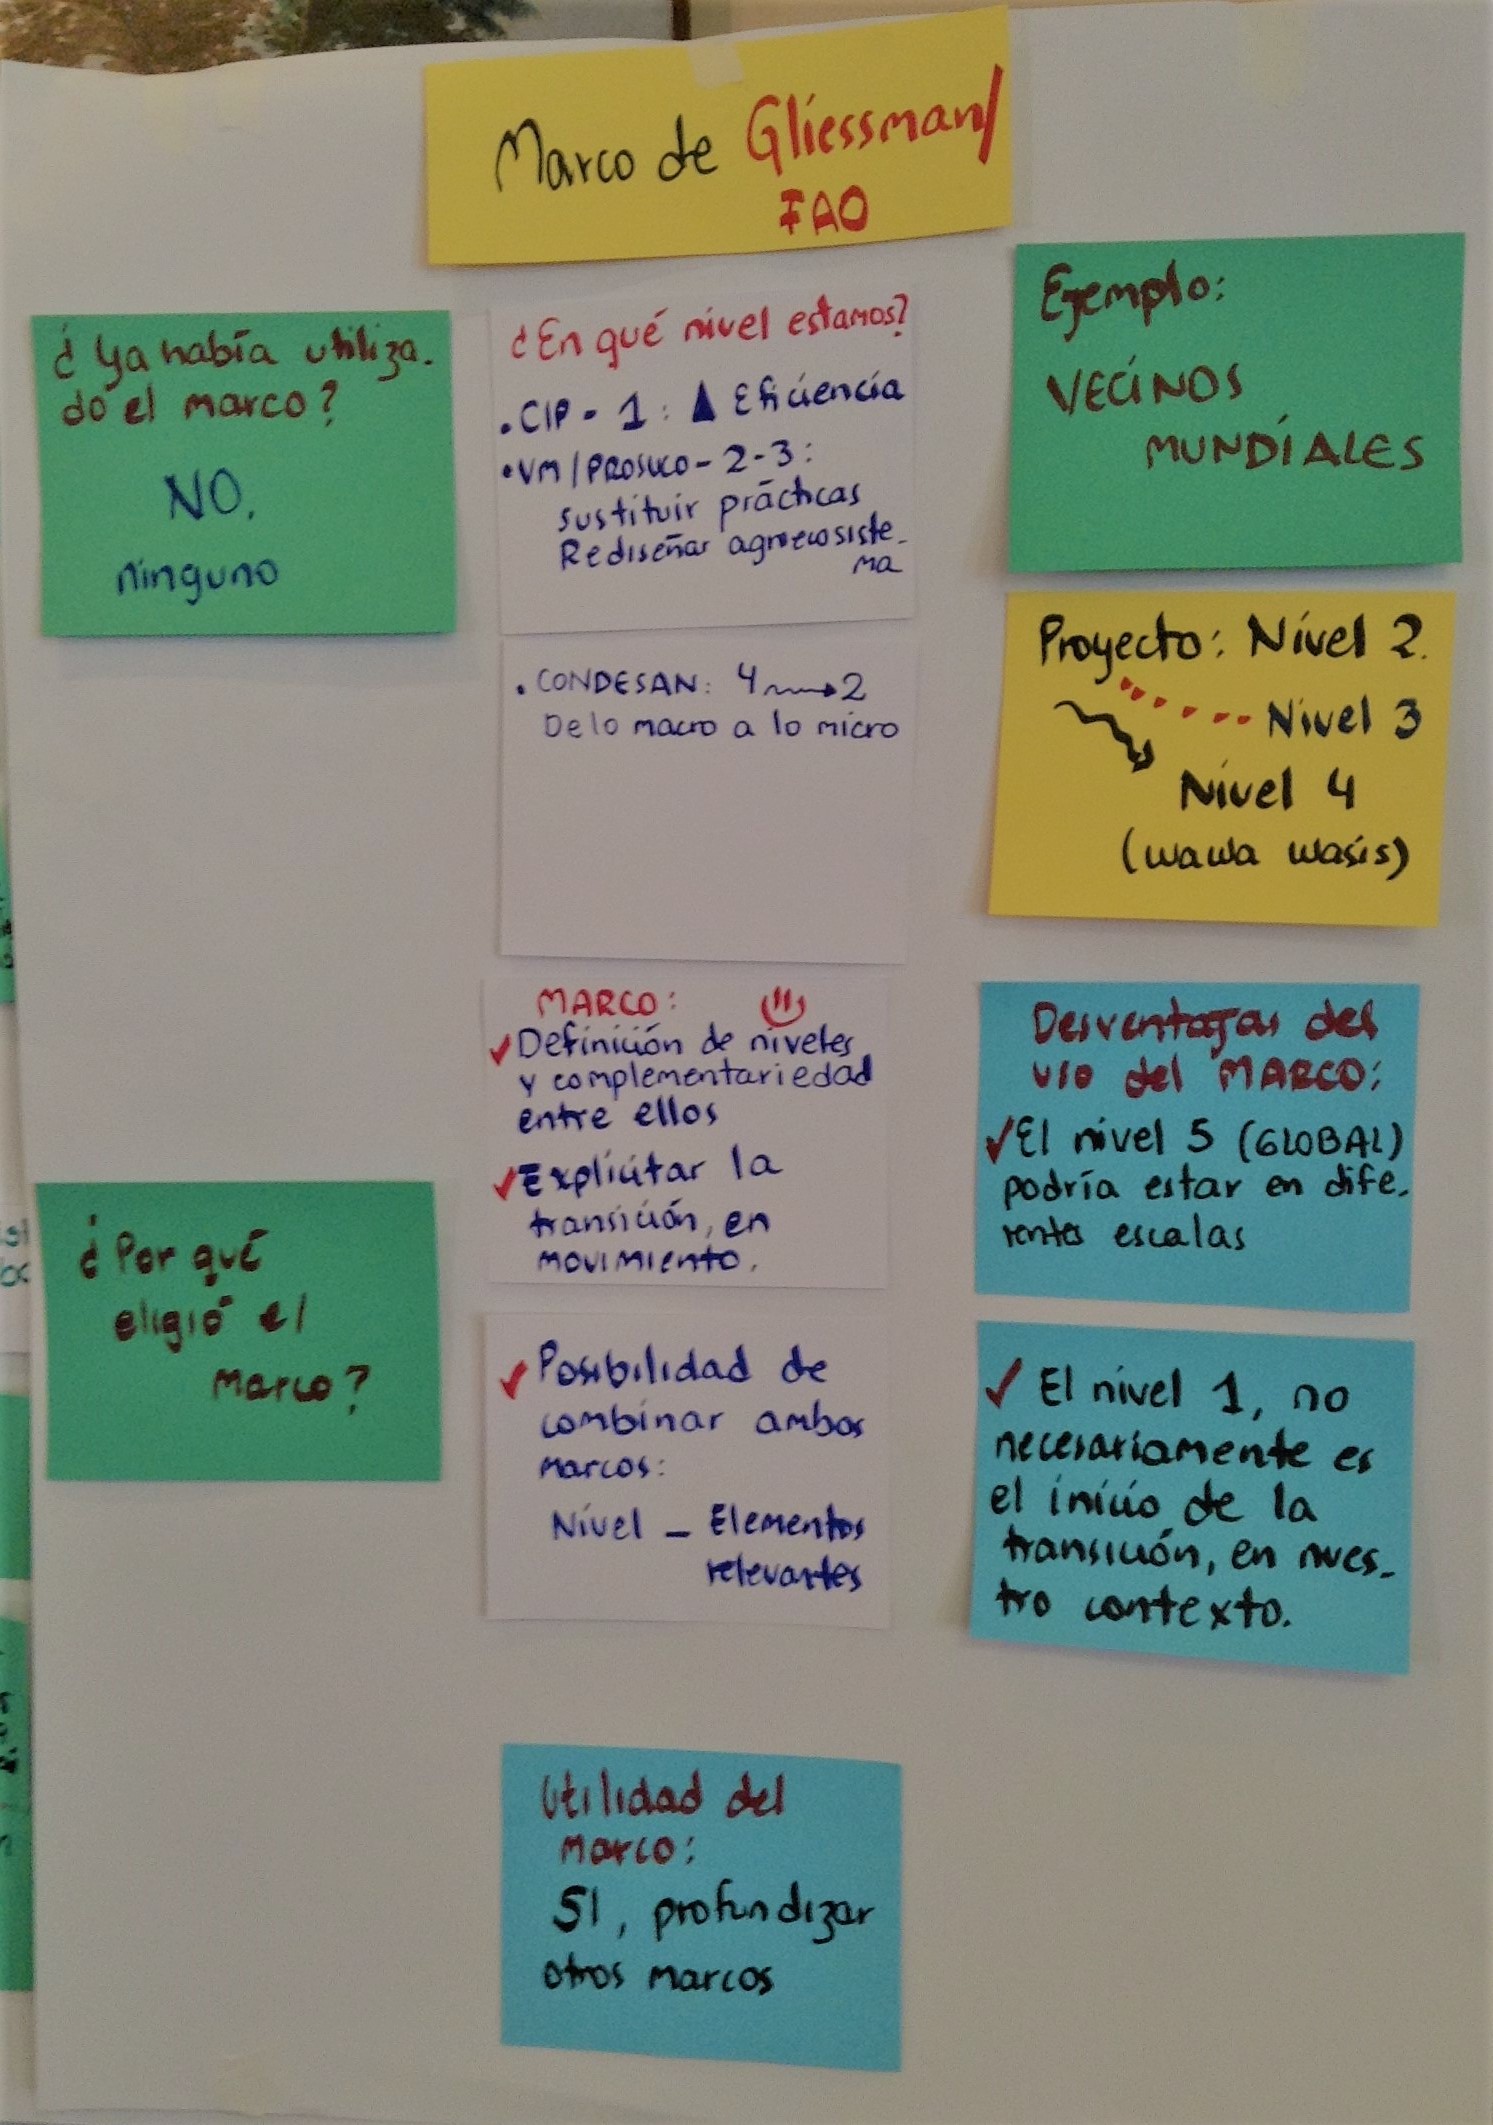 Marco de Gliessman/
FAO
¿Ya había utiliza-
do el marco?
NO.
ninguno
¿En qué nivel estamos?
• CIP - 1: ▲ Eficiencia
• VM / PROSUCO - 2-3:
sustituir prácticas
Rediseñar agroecosiste-
ma
• CONDESAN: 4 → 2
De lo macro a lo micro
Ejemplo:
VECINOS
MUNDIALES
Proyecto: Nivel 2.
Nivel 3
Nivel 4
(wawa wasis)
¿Por qué
eligió el
marco?
MARCO:
✓ Definición de niveles
y complementariedad
entre ellos
✓ Explicitar la
transición, en
movimiento.
✓ Posibilidad de
combinar ambos
marcos:
Nivel - Elementos
relevantes
Desventajas del
uso del MARCO:
✓ El nivel 5 (GLOBAL)
podría estar en dife-
rentes escalas
✓ El nivel 1, no
necesariamente es
el inicio de la
transición, en nues-
tro contexto.
Utilidad del
marco:
SI, profundizar
otros marcos